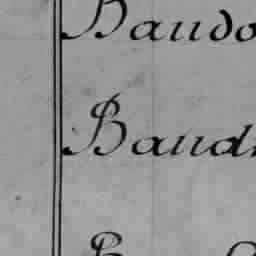 Baudo
Baud